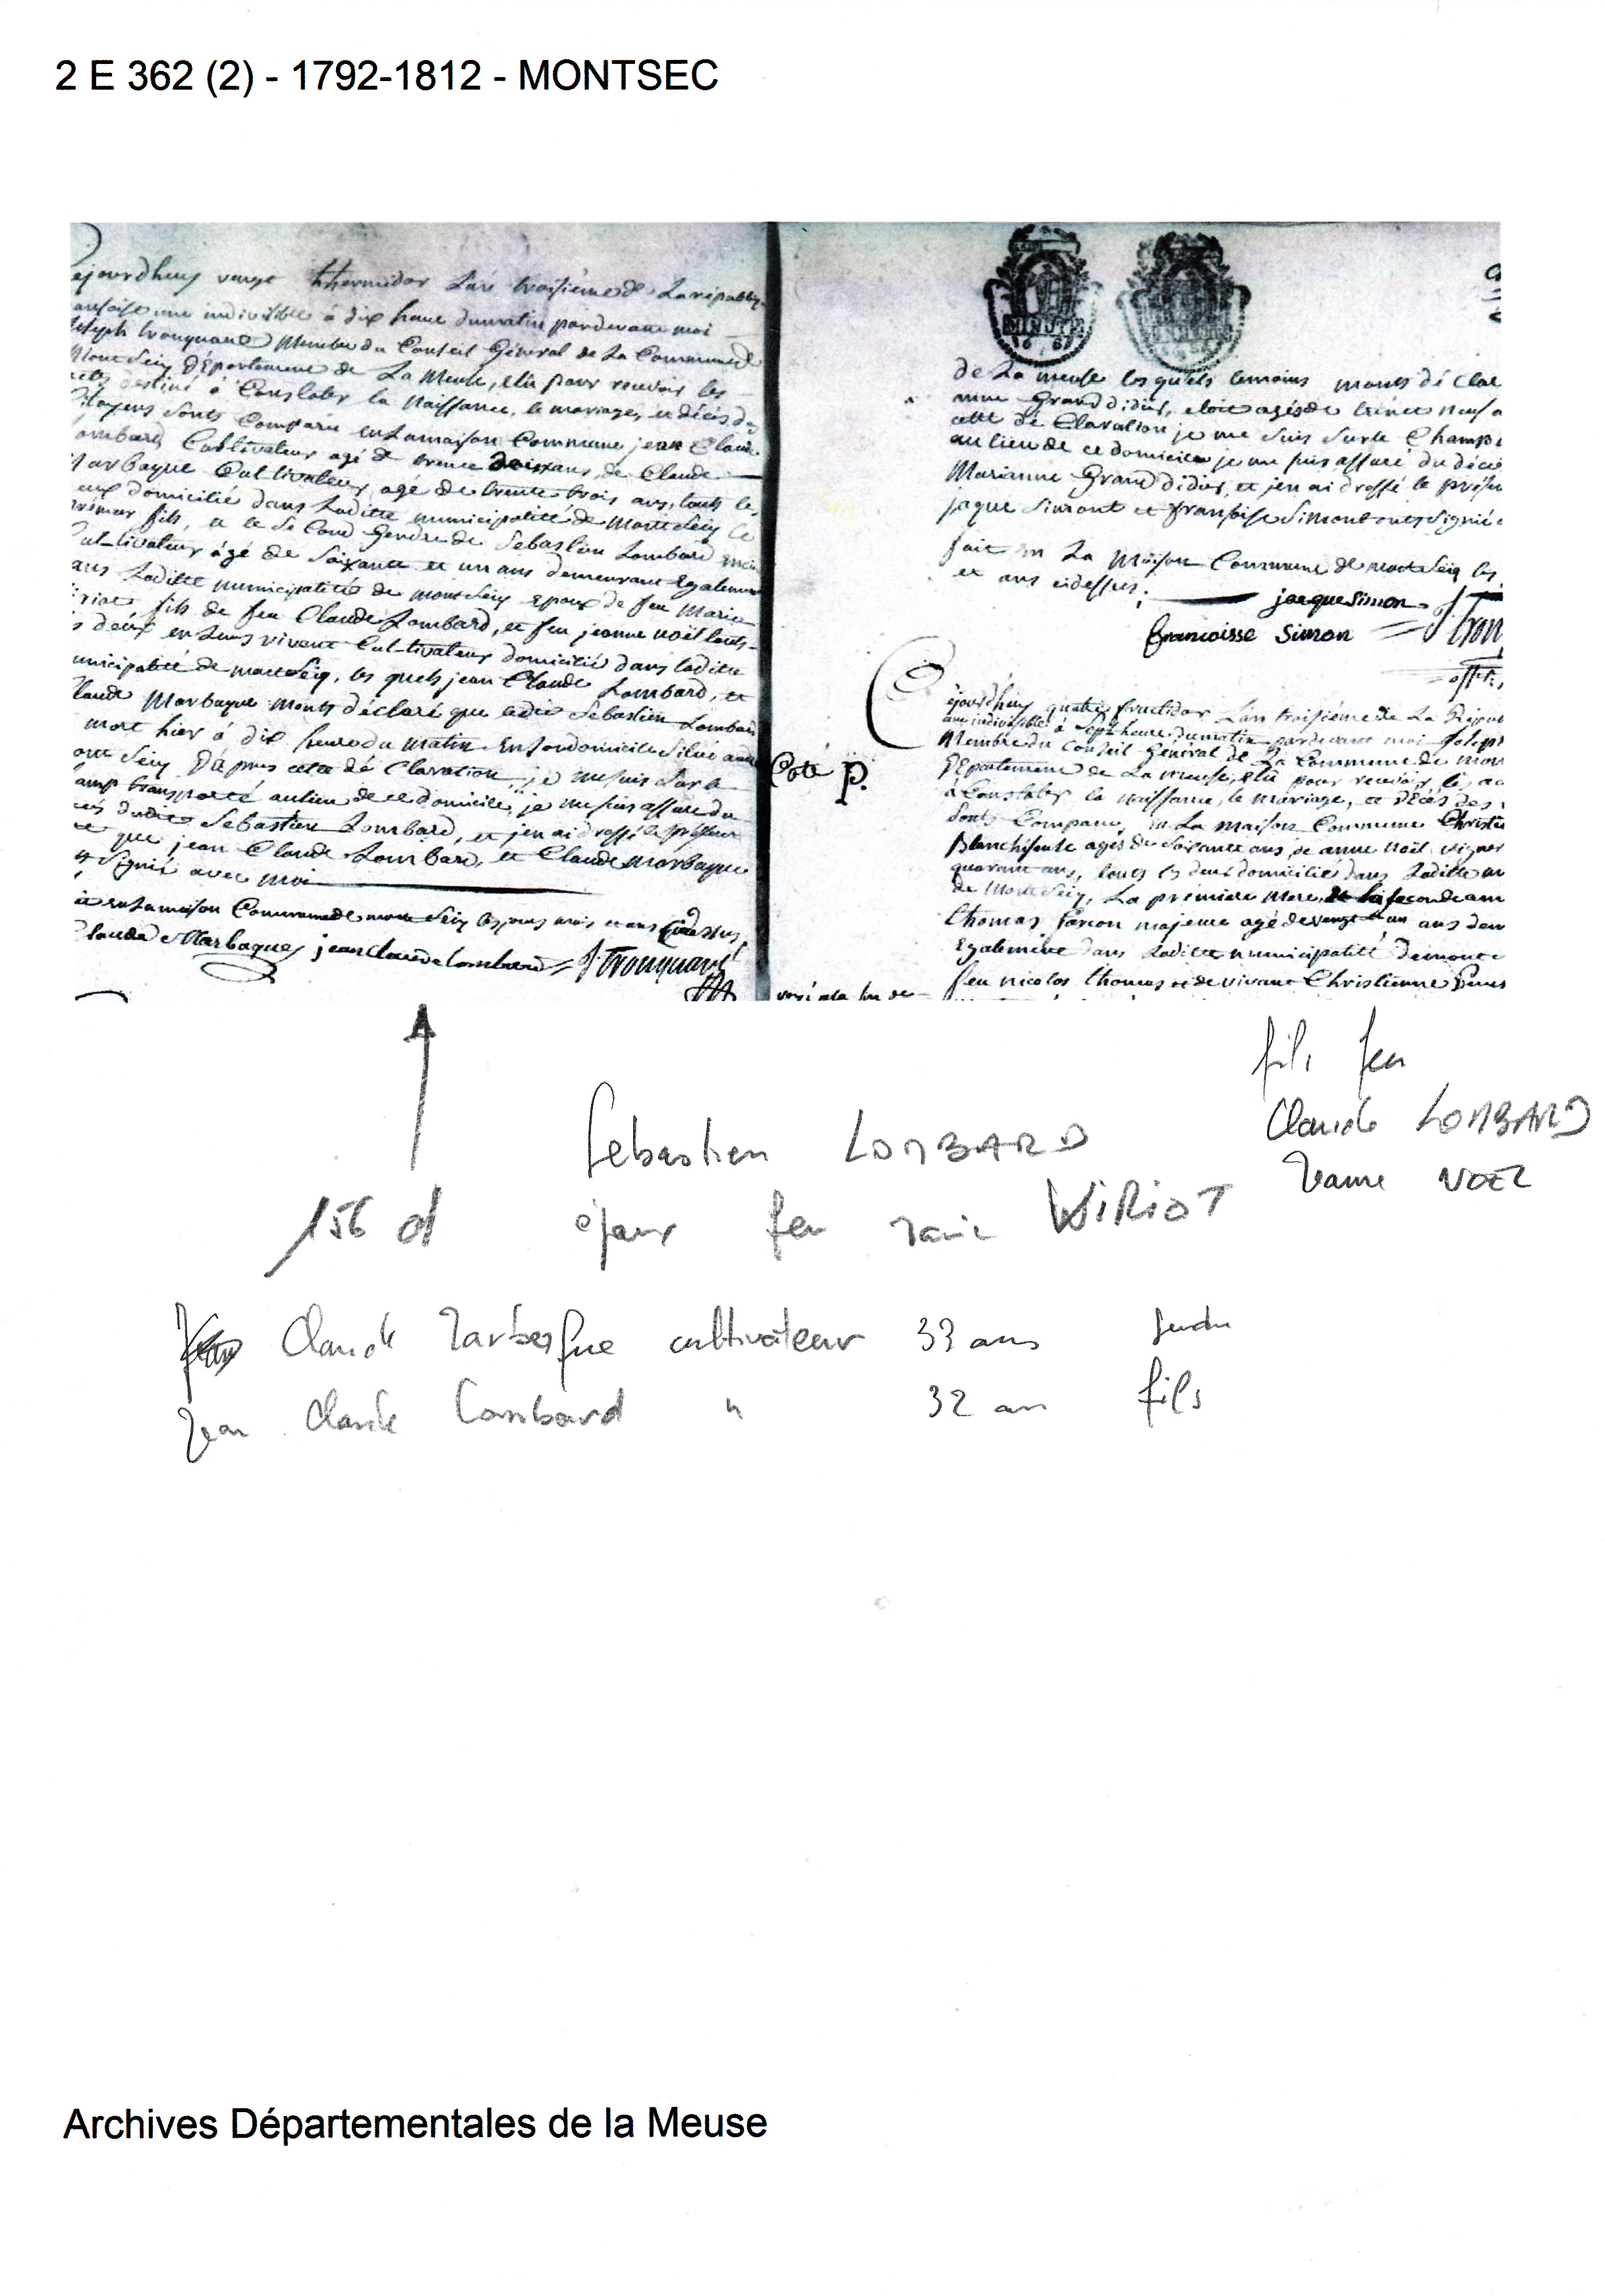 2 E 362 (2) - 1792-1812 - MONTSEC
ejourdhuy vingt thermidor Lan troisieme de La républ
ansoise une indivisible à dix heure dumatin pardevant moi
Joseph trouquant Membre du Conseil Général de La Commune de
Mont Seiq DÉpartement de La Meuse, élu pour recevoir les
actes destiné à Constater la Naissance, le mariage, et décès de
itoyens Sonts Comparu en Lamaison Commune jean Claude
ombard Cultivateur agé de trente deux ans, de Claude
Marbaque Cultivateur agé de trente trois ans, touts les
eux domicilié dans Laditte municipalité de MontSeiq Le
rémier fils, et le Second Gendre de Sebastien Lombard
ultivateur âgé de Soixante et un ans demeurant Egaleme
ans Laditte municipalité de montSeiq Epoux de feu Marie
riot fils de feu Claude Lombard, et feu jeanne noël touts
s deux en Leurs vivent Cultivateur domicilié dans laditte
unicipalité de montSeiq, les quels jean Claude Lombard, et
laude Marbaque monts déclaré que ledit Sebastien Lombard
mort hier à dix heure du matin En Son domicile Situé
ont Seiq D'apres cette dé Claration, je me suis Sur le
amp transporté aulieu de ce domicile, je me suis assuré du
cès dudit Sebastien Lombard, et jen ai dressé le présent
te que jean Claude Lombard, et Claude Marbaque
t Signié avec moi
it en Lamaison Commune de mont Seiq les jours mois et ans cidessus
laude Marbaque jean Claude lombard J Trouquant
de La meuse lesquels temoins monts dé Clar
nne Grand didier, etoit agés de trente neuf a
cette dé Claration je me Suis Surle Champ
au lieu de ce domicile je me suis assuré du décè
Marianne Grand didier, et jen ai dressé le présen
jaque Simont et françoise Simont onts Signié
fait en La Maison Commune de mont Seiq les
et ans cidessus;
jacque Simon J Trou
francoisse Simon
Coté P.
Cejourdhuy quatre fructidor Lan troisieme de La Répu
une indivisible à Sept heure dumatin pardevant moi Joseph
Membre du Conseil Général de La Commune de mon
DÉpartement de La meuse, élu pour recevoir les ac
à Constater la naissance, le mariage, et DÉcès des
Sonts Comparu, en La maison Commune Christi
Blanchisante agés de Soixante ans, de anne Noël vigner
quarante ans, touts les deux domicilié dans Laditte
de MontSeiq, La première Mere, et la seconde
thomas Garcon majeure agé de vengt un ans dem
Egalement dans Laditte municipalité de mont
feu nicolas thomas et de vivant Christienne
MINUTE
fils feu
Claude LOMBARD
Jeanne NOEL
Sebastien LOMBARD
156 d époux feu Marie WIRIOT
Claude Marbesque cultivateur 33 ans Gendre
Jean Claude Lombard " 32 an fils
Archives Départementales de la Meuse